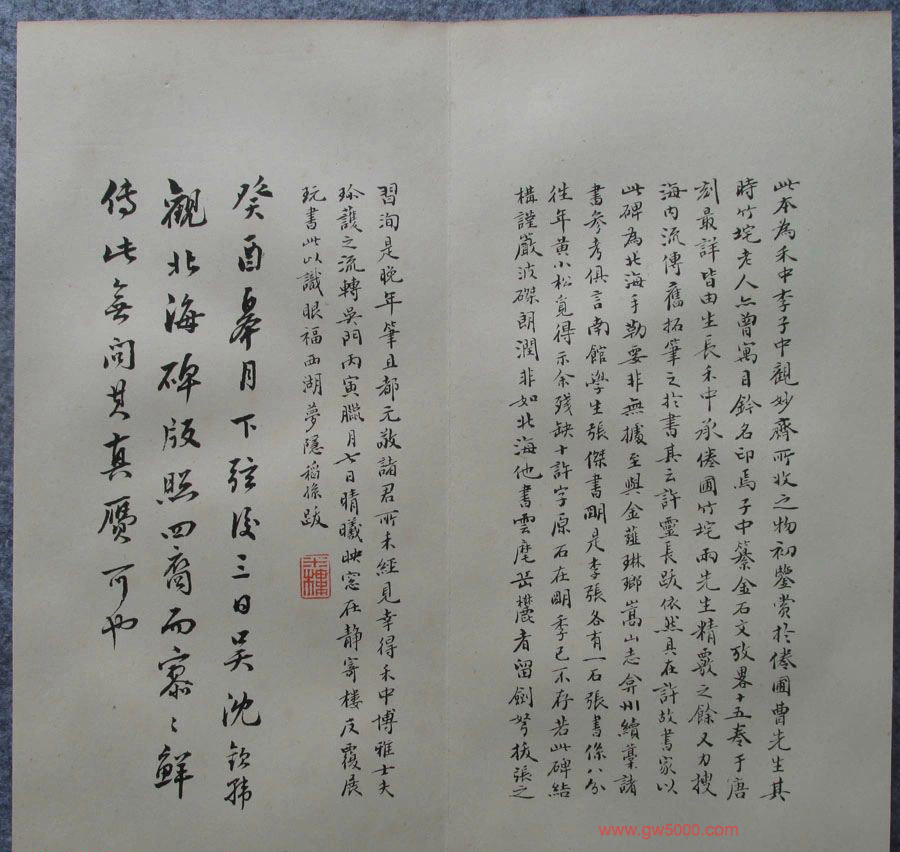 此本為禾中李子中觀妙齋所收之物初鑒賞於倦圃曹先生其
時竹垞老人亦曾寓目鈐名印焉子中纂金石文攷畧十五卷于唐
刻最詳皆由生長禾中承倦圃竹垞兩先生精覈之餘又力搜
海内流傳舊拓筆之於書其云許靈長跋依然具在許故書家以
此碑為北海手勒要非無據至與金薤琳瑯嵩山志弇州續藁諸
書參考俱言南館學生張傑書朙是李張各有一石張書係八分
往年黄小松覓得示余殘缺十許字原石在朙季已不存若此碑結
構謹嚴波磔朗潤非如北海他書雲麾岳麓者留劍弩拔張之
習洵是晚年筆且都元敬諸君所未經見幸得禾中博雅士夫
珍護之流轉吳門丙寅臘月七日晴曦映窓在静寄樓反覆展
玩書此以識眼福西湖夢隱稻孫跋
癸酉辜月下弦後三日吴沈欽韩
觀北海碑版照四裔而寥〻鮮
傳此無問其真贋可也
www.gw5000.com